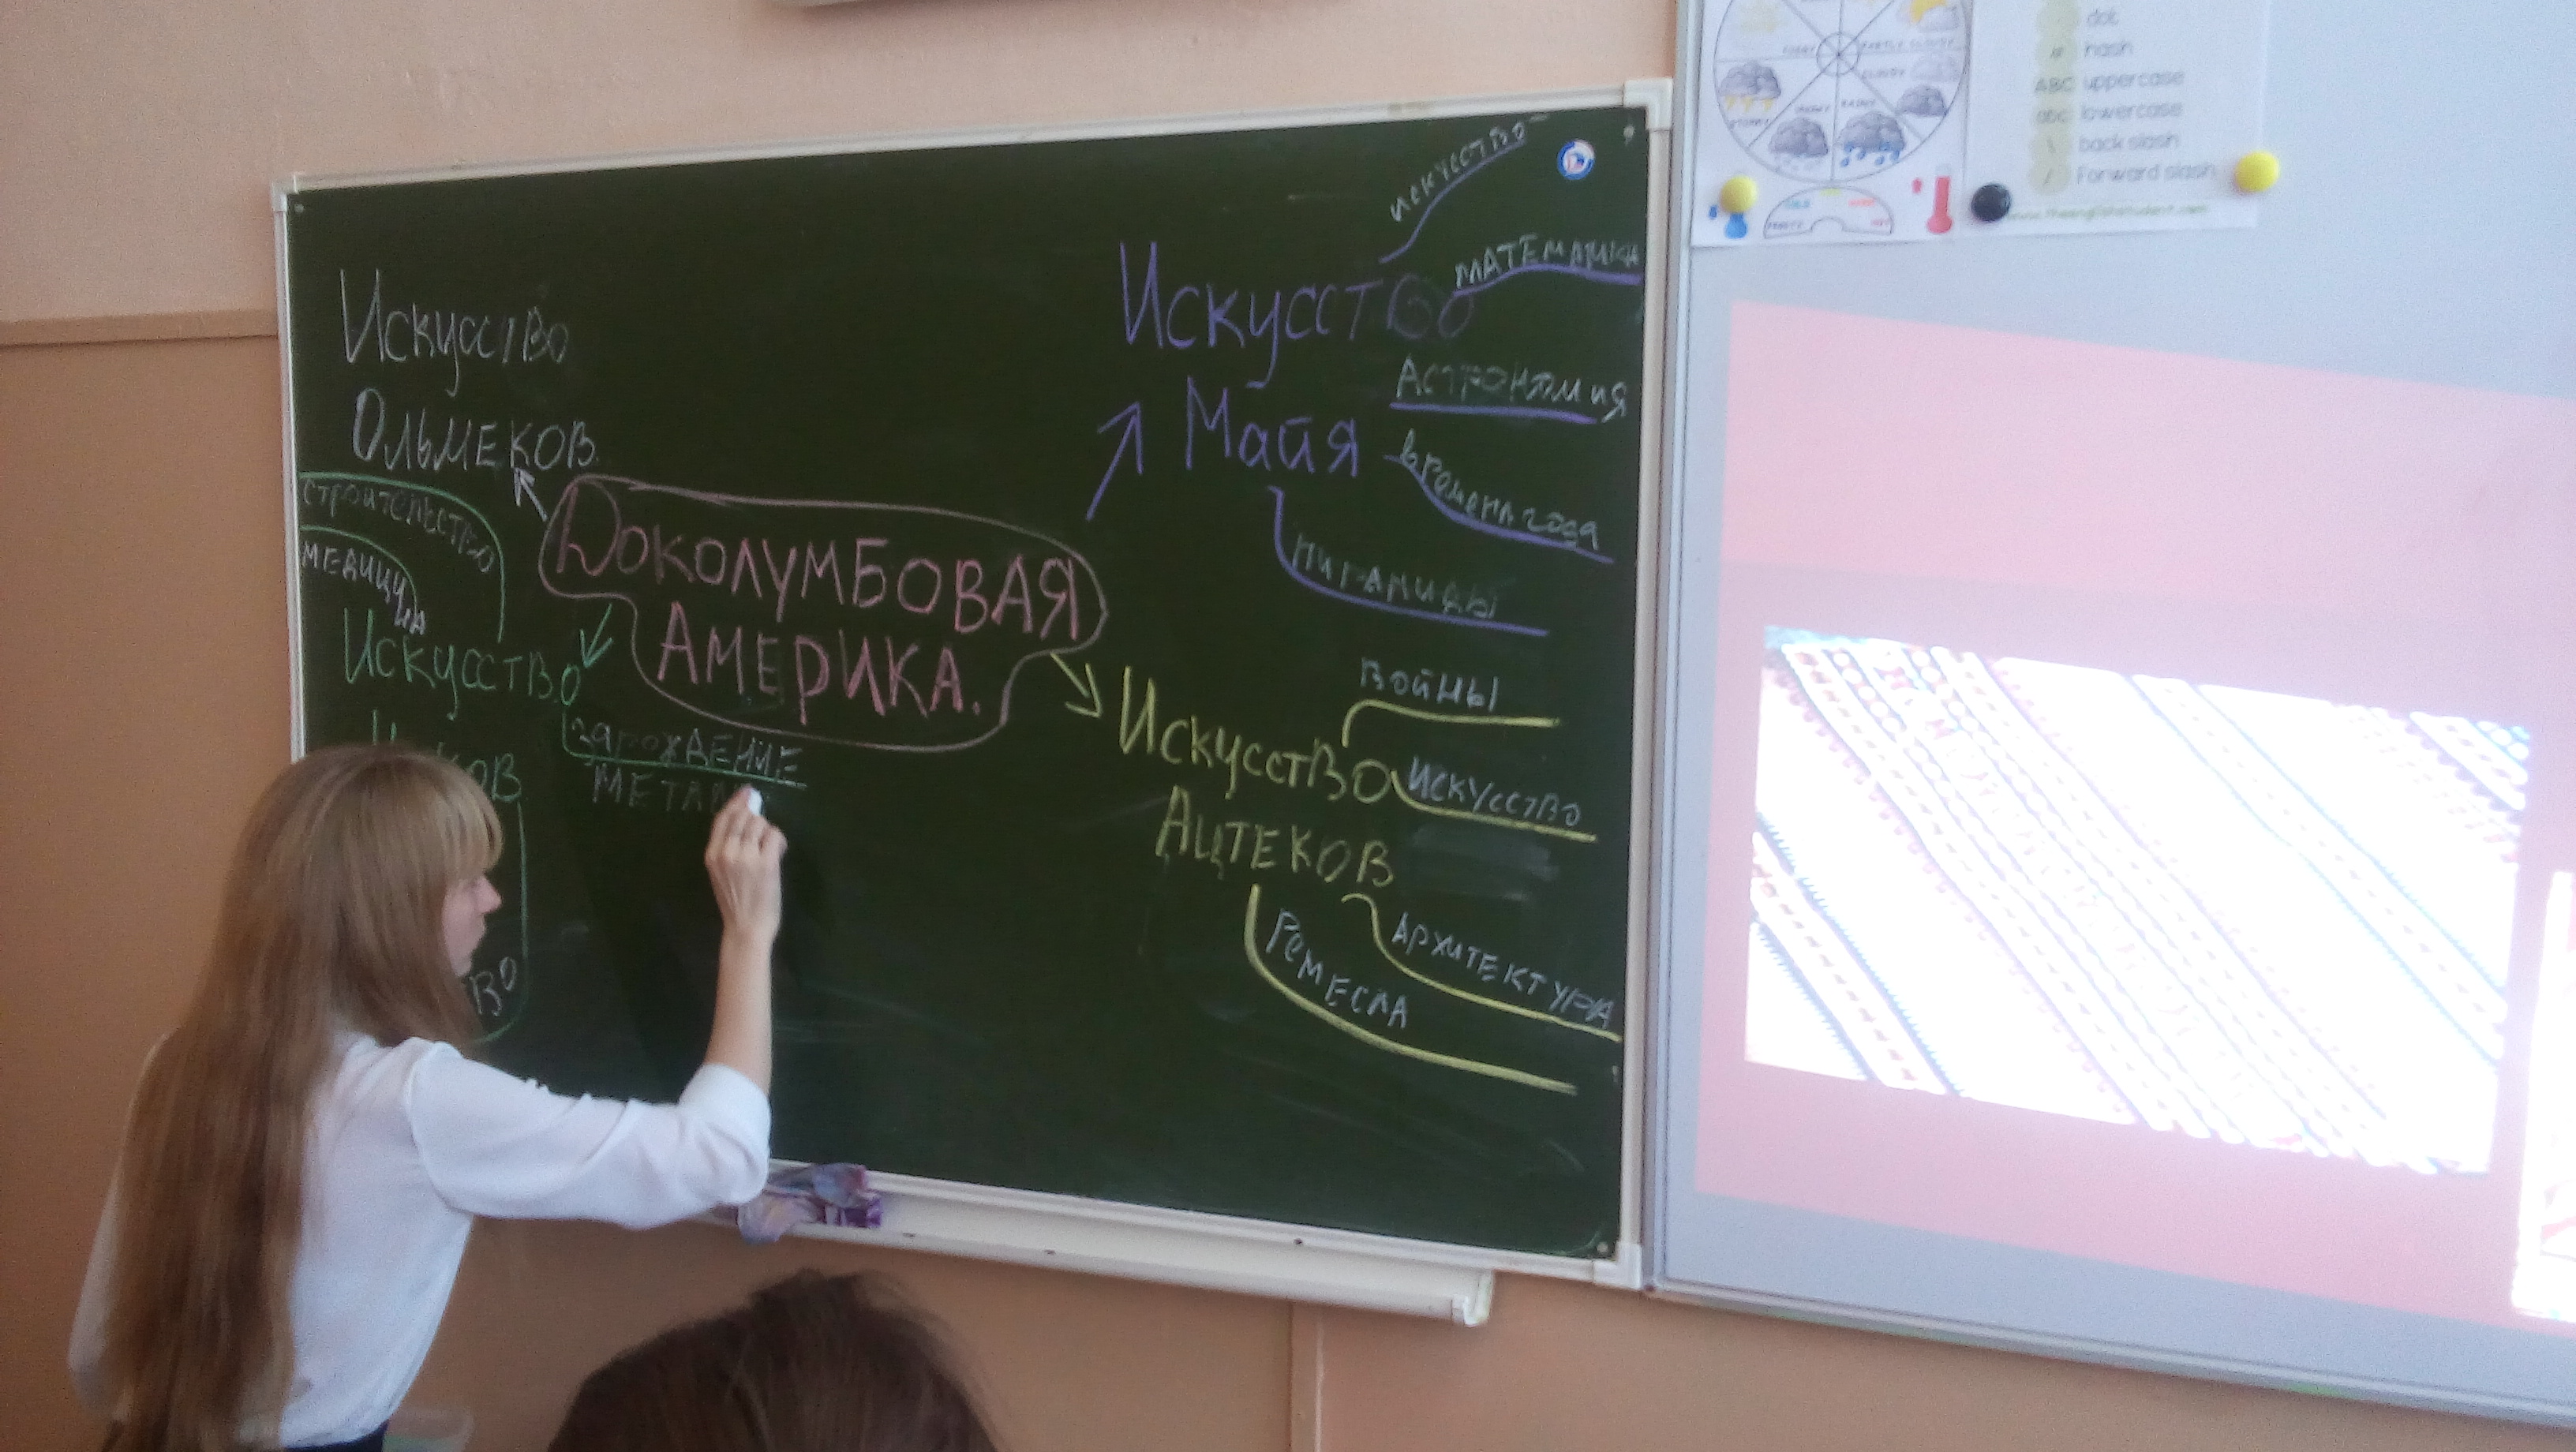 Искусство
Ольмеков
строительство
медицина
Искусство
ков
зарождение
ДОКОЛУМБОВАЯ
АМЕРИКА.
искусство
математика
Искусство
Майя
Астрономия
времена года
пирамиды
войны
Искусство
искусство
Ацтеков
Архитектура
Ремесла
CLOUDY
RAINY
SNOWY
dot
# hash
ABC uppercase
abc lowercase
\ back slash
/ Forward slash